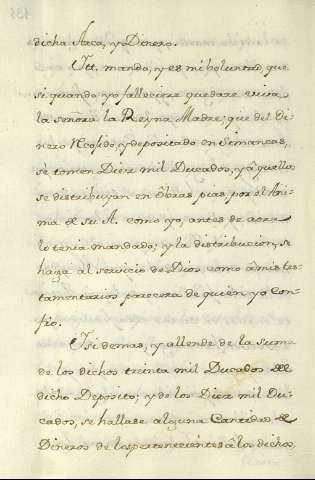 dicha Arca, y Dinero.
Itt. mando, y es mi voluntad, que
si quando yo falleciere quedare viva
la señora la Reyna Madre; que del Di=
nero Recosido, y depositado en Simancas,
se tomen Diez mil Ducados, y âquellos
se distribuyan en Obras pias, por el Ani=
ma de su A. como yo, antes de aora
lo tenia mandado; y la distribucion, se
haga al servicio de Dios como â mis tes=
tamentarios parecera de quien yo con=
fio.
I si demas, y allende de la suma
de los dichos treinta mil Ducados del
dicho Deposito; y de los Diez mil Du=
cados, se hallase alguna Cantidad de
Dineros de los pertenecientes â los dichos